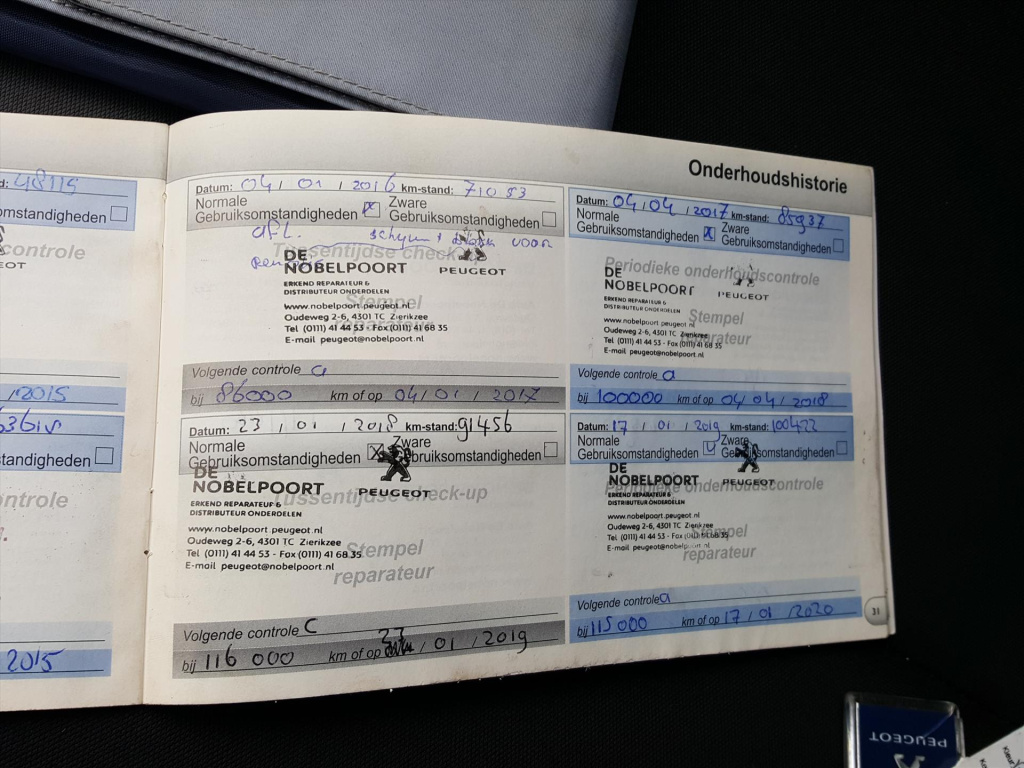 d: 48115
omstandigheden
controle
OT
, 2015
omstandigheden
ntrole
2015
Onderhoudshistorie
Datum: 04 / 01 / 2016 km-stand: 71053
Normale
Gebruiksomstandigheden
Zware
Gebruiksomstandigheden
voor
Tussentijdse check-up
DE
NOBELPOORT
PEUGEOT
ERKEND REPARATEUR &
DISTRIBUTEUR ONDERDELEN
Stempel
www.nobelpoort.peugeot.nl
Oudeweg 2-6, 4301 TC Zierikzee
Tel (0111) 41 44 53 - Fax (0111) 41 68 35
E-mail peugeot@nobelpoort.nl
Volgende controle a
bij 86000 km of op 04 / 01 / 2017
Datum: 04 / 04 / 2017 km-stand: 85937
Normale
Gebruiksomstandigheden
Zware
Gebruiksomstandigheden
Periodieke onderhoudscontrole
DE
NOBELPOORT
PEUGEOT
ERKEND REPARATEUR &
DISTRIBUTEUR ONDERDELEN
Stempel
reparateur
www.nobelpoort.peugeot.nl
Oudeweg 2-6, 4301 TC Zierikzee
Tel (0111) 41 44 53 - Fax (0111) 41 68 35
E-mail peugeot@nobelpoort.nl
Volgende controle a
bij 100000 km of op 04 / 04 / 2018
Datum: 23 / 01 / 2018 km-stand: 91456
Normale
Gebruiksomstandigheden
Zware
Gebruiksomstandigheden
DE
NOBELPOORT
PEUGEOT
Tussentijdse check-up
ERKEND REPARATEUR &
DISTRIBUTEUR ONDERDELEN
www.nobelpoort.peugeot.nl
Oudeweg 2-6, 4301 TC Zierikzee
Tel (0111) 41 44 53 - Fax (0111) 41 68 35
E-mail peugeot@nobelpoort.nl
Stempel
reparateur
Volgende controle C
bij 116 000 km of op 23 / 01 / 2019
Datum: 17 / 01 / 2019 km-stand: 100422
Normale
Gebruiksomstandigheden
Zware
Gebruiksomstandigheden
DE
NOBELPOORT
PEUGEOT
Periodieke onderhoudscontrole
ERKEND REPARATEUR &
DISTRIBUTEUR ONDERDELEN
www.nobelpoort.peugeot.nl
Oudeweg 2-6, 4301 TC Zierikzee
Tel (0111) 41 44 53 - Fax (0111) 41 68 35
E-mail peugeot@nobelpoort.nl
Stempel
reparateur
Volgende controle a
bij 115000 km of op 17 / 01 / 2020
31
PEUGEOT